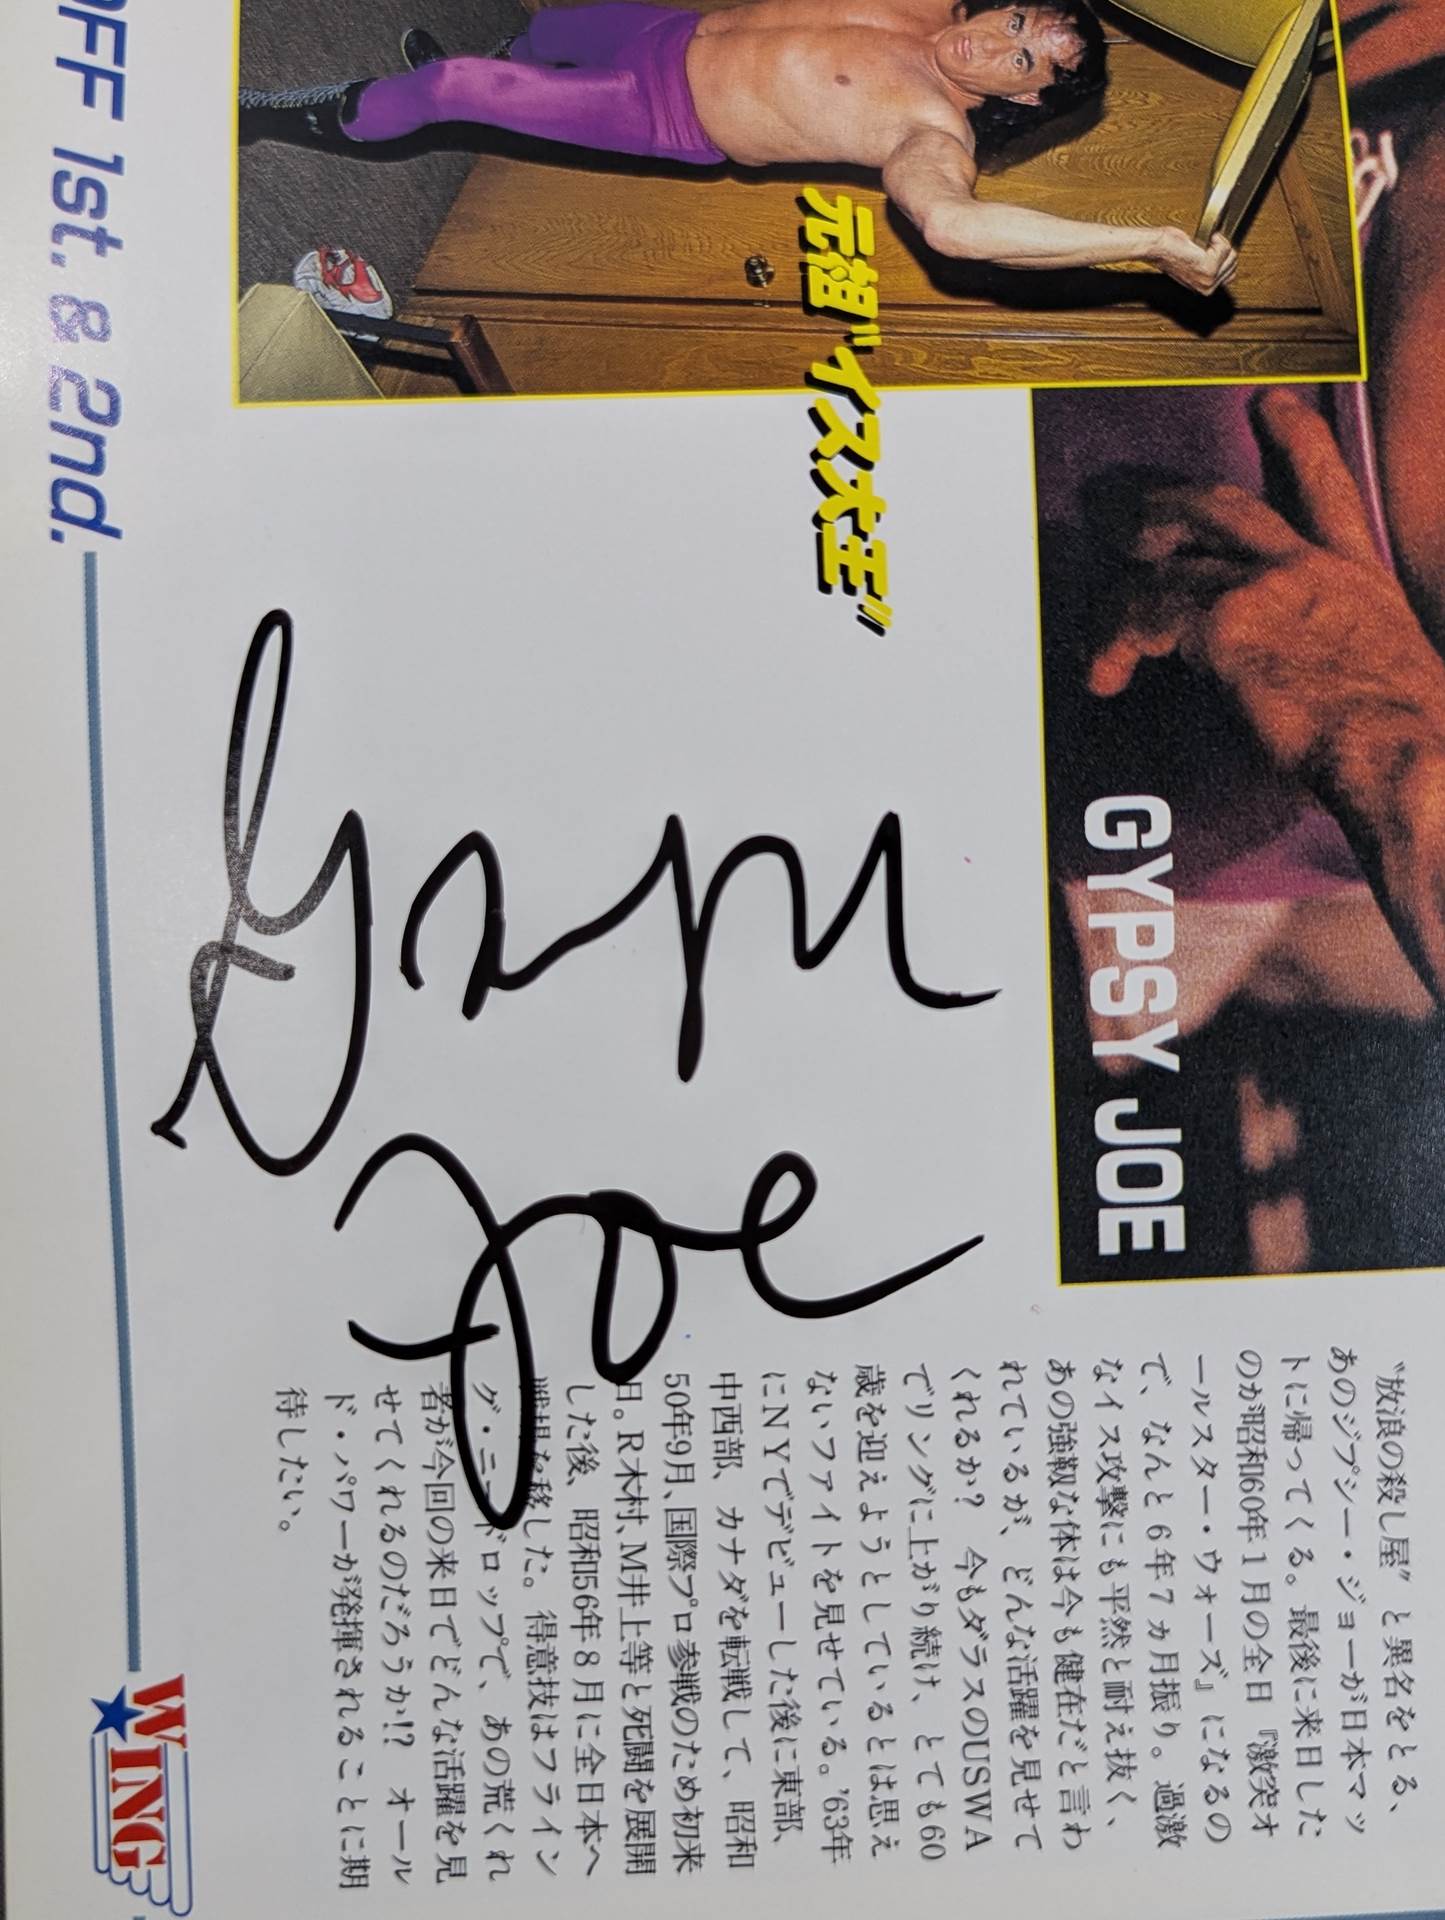 OFF 1st. & 2nd.
元祖“イス大王”
GYPSY JOE
Gypsy
Joe
“放浪の殺し屋”と異名をとる、
あのジプシー・ジョーが日本マッ
トに帰ってくる。最後に来日した
のが昭和60年１月の全日『激突オ
ールスター・ウォーズ』になるの
で、なんと６年７ヵ月振り。過激
なイス攻撃にも平然と耐え抜く、
あの強靱な体は今も健在だと言わ
れているが、どんな活躍を見せて
くれるか？　今もダラスのUSWA
でリングに上がり続け、とても60
歳を迎えようとしているとは思え
ないファイトを見せている。'63年
にＮＹでデビューした後に東部、
中西部、カナダを転戦して、昭和
50年9月、国際プロ参戦のため初来
日。Ｒ木村、Ｍ井上等と死闘を展開
した後、昭和56年８月に全日本へ
戦場を移した。得意技はフライン
グ・ニードロップで、あの荒くれ
者が今回の来日でどんな活躍を見
せてくれるのだろうか!?　オール
ド・パワーが発揮されることに期
待したい。
WING